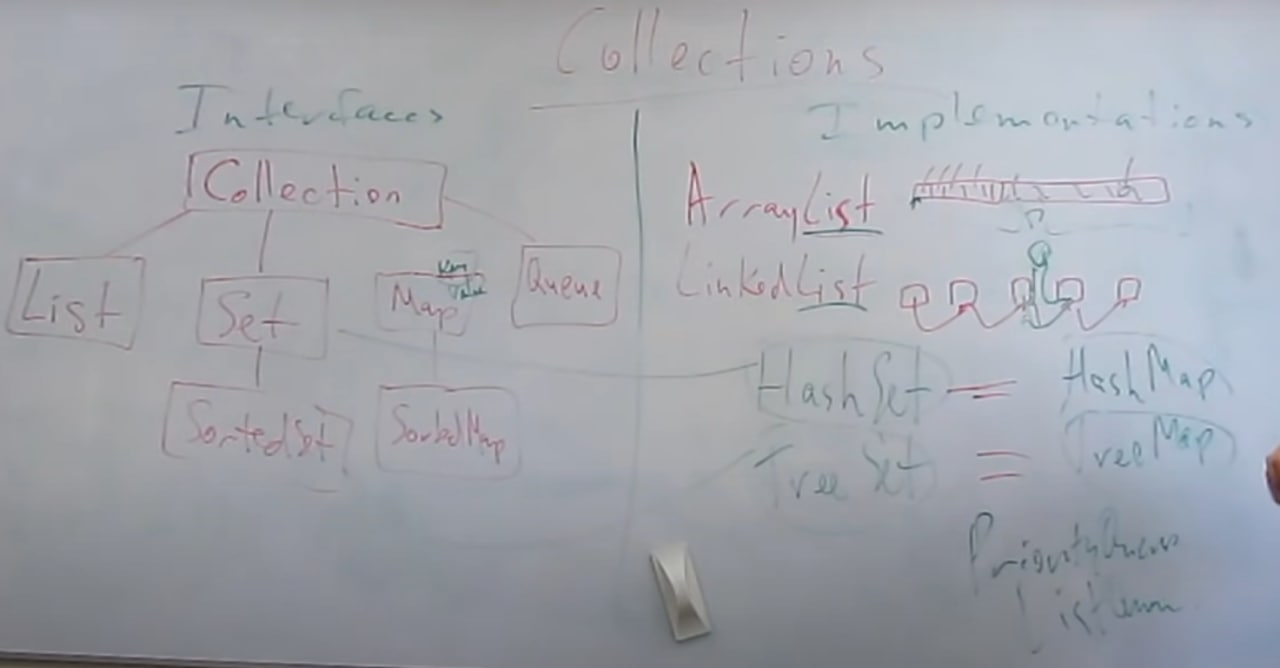 Collections
Interfaces
Collection
List
Set
Map
Key
Value
Queue
SortedSet
SortedMap
Implementations
ArrayList
n
LinkedList
HashSet = HashMap
TreeSet = TreeMap
PriorityQueue